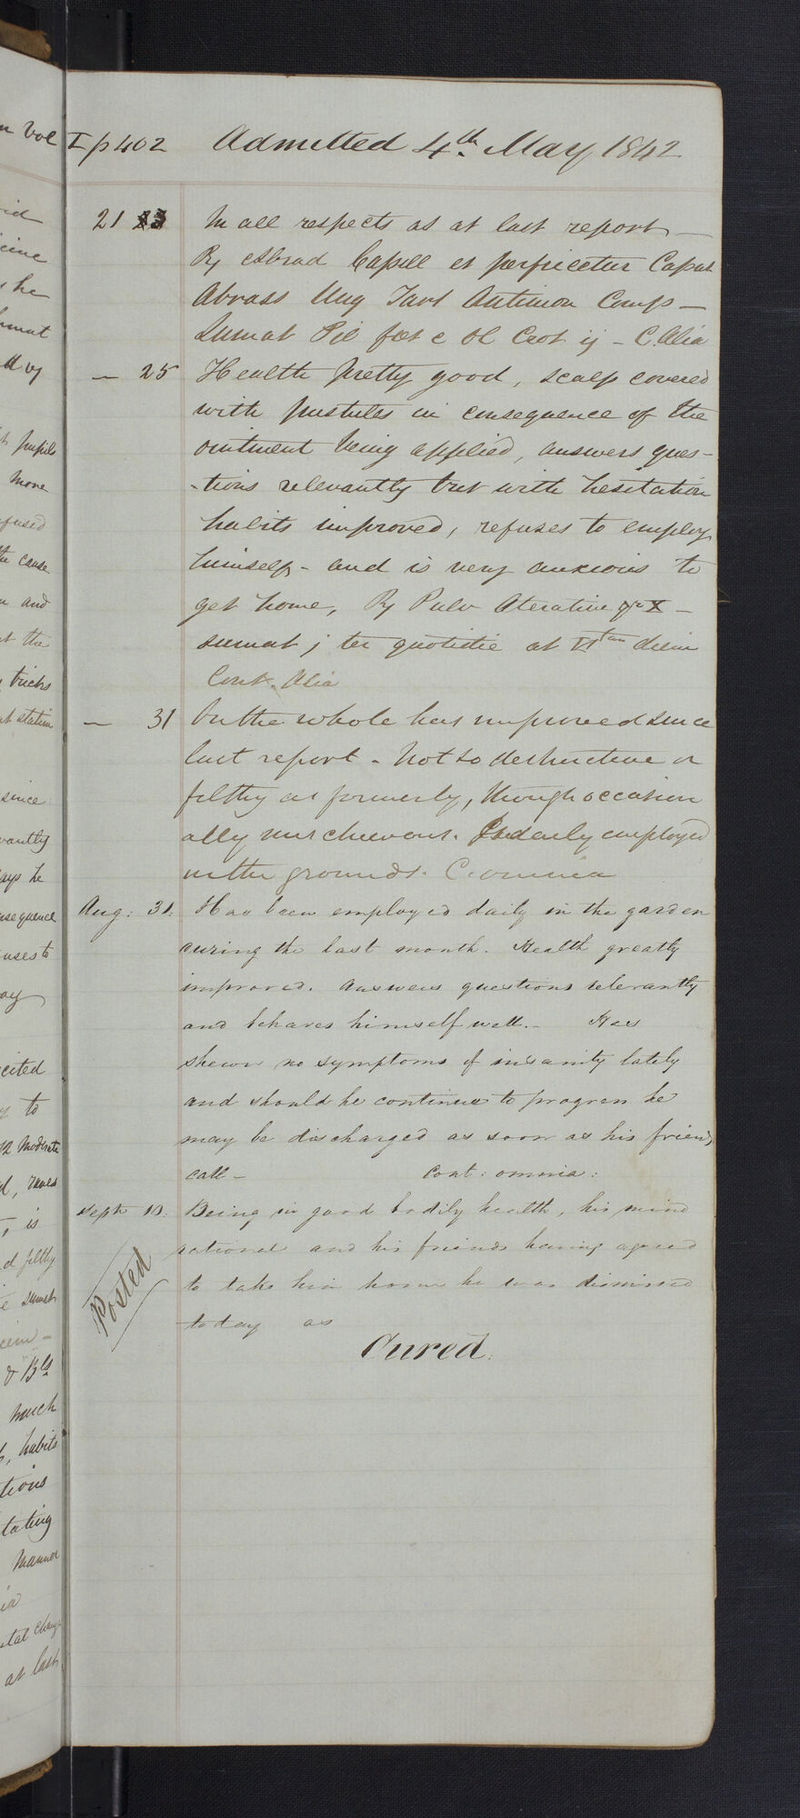 I p 402 Admitted 4th May 1842
21 In all respects as at last report —
Rx Abrad Capill et perfricetur Caput
Abrass Ung Tart Antimon Comp —
Sumat Pil fœt c Ol Crot ij — C. Alia
— 25 Health pretty good, scalp covered
with pustules in consequence of the
ointment being applied, answers ques-
-tions relevantly but with hesitation
habits improved, refuses to employ
himself - and is very anxious to
get home, Rx Pulv Alterative gr X —
sumat j ter quotidie at VItam diem
Cont. Alia
— 31 On the whole has improved since
last report - Not so destructive or
filthy as formerly, though occasion
ally mischievous. Is daily employed
in the grounds. C. omnia
Aug: 31. Has been employed daily in the garden
during the last month. Health greatly
improved. Answers questions relevantly
and behaves himself well. — Has
shewn no symptoms of insanity lately
and should he continue to progress he
may be discharged as soon as his friends
call — Cont: omnia:
Sept 10. Being in good bodily health, his mind
rational and his friends having agreed
to take him home he was dismissed
today as
Cured.
Posted
n Vol
he
pupils
More
the cause
and
t the
tricks
since
says he
uses to
cited
to
Moderate
is
much
habits
tions
tating
Manner
at last